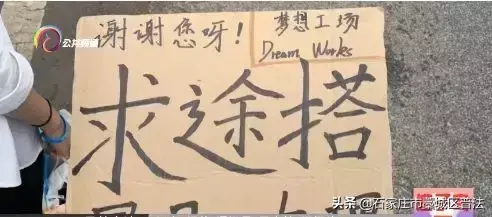 公共频道
谢谢您呀! 梦想工场
Dream Works
求途搭
头条@石家庄市藁城区普法